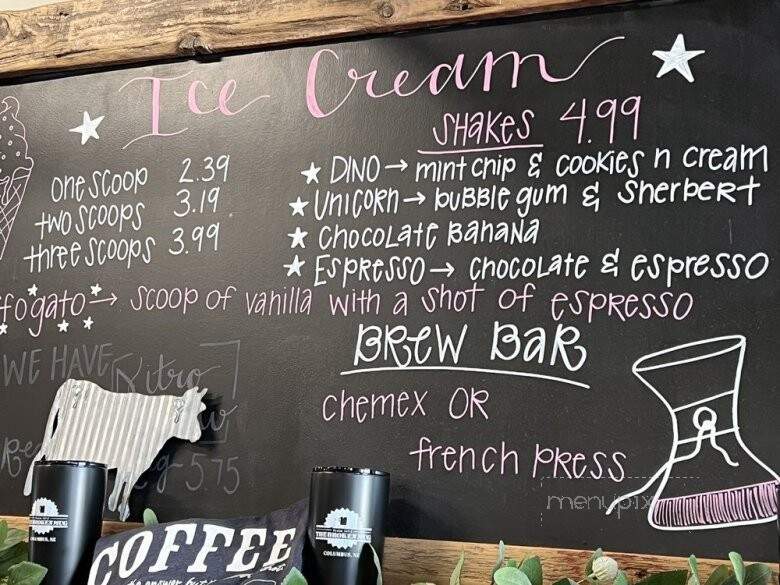 Ice Cream
one scoop 2.39
two scoops 3.19
three scoops 3.99
SHAKES 4.99
DINO → mint chip & cookies n cream
UNICORN → bubble gum & Sherbert
chocolate banana
Espresso → chocolate & espresso
ffogato → scoop of vanilla with a shot of espresso
WE HAVE Nitro
5.75
BREW BAR
chemex OR
french press
menupix
THE BROKEN MUG
COLUMBUS, NE
COFFEE
THE BROKEN MUG
COLUMBUS, NE